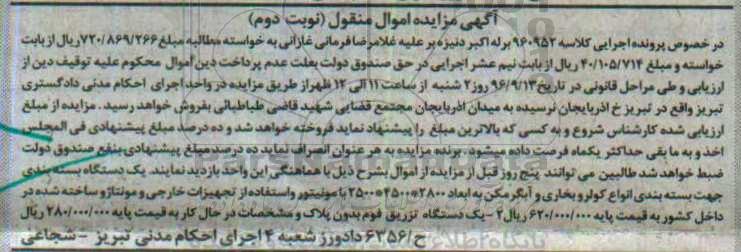 آگهی مزایده اموال منقول (نوبت دوم)
در خصوص پرونده اجرایی کلاسه ۹۶۰۹۵۲ برله اکبر دنیزه بر علیه غلامرضا فرمانی غازانی به خواسته مطالبه مبلغ ۷۲۰/۸۶۹/۲۶۶ ریال از بابت
خواسته و مبلغ ۴۰/۱۰۵/۷۱۴ ریال از بابت نیم عشر اجرایی در حق صندوق دولت بعلت عدم پرداخت دین اموال محکوم علیه توقیف دین از
ارزیابی و طی مراحل قانونی در تاریخ ۹۶/۹/۱۳ روز ۲ شنبه از ساعت ۱۱ الی ۱۲ ظهر از طریق مزایده در واحد اجرای احکام مدنی دادگستری
تبریز واقع در تبریز خ آذربایجان نرسیده به میدان آذربایجان مجتمع قضایی شهید قاضی طباطبائی بفروش خواهد رسید . مزایده از مبلغ
ارزیابی شده کارشناس شروع و به کسی که بالاترین مبلغ را پیشنهاد نماید فروخته خواهد شد و ده درصد مبلغ پیشنهادی فی المجلس
اخذ و به مابقی حداکثر یکماه فرصت داده میشود . برنده مزایده به هر عنوان انصراف نماید ده درصد مبلغ پیشنهادی بنفع صندوق دولت
ضبط خواهد شد طالبین می توانند پنج روز قبل از مزایده از اموال بشرح ذیل با هماهنگی این واحد بازدید نمایند. یک دستگاه بسته بندی
جهت بسته بندی انواع کولر و بخاری و آبگرمکن به ابعاد ۲۸۰۰*۴۵۰۰*۲۵۰۰ با مونیتور و استفاده از تجهیزات خارجی و مونتاژ و ساخته شده در
داخل کشور به قیمت پایه ۶۲۰/۰۰۰/۰۰۰ ریال ۲ - یک دستگاه تزریق فوم بدون پلاک و مشخصات در حال کار به قیمت پایه ۲۸۰/۰۰۰/۰۰۰ ریال
ح/۶۳۵۶ دادورز شعبه ۴ اجرای احکام مدنی تبریز - شجاعی
ParsNamadData